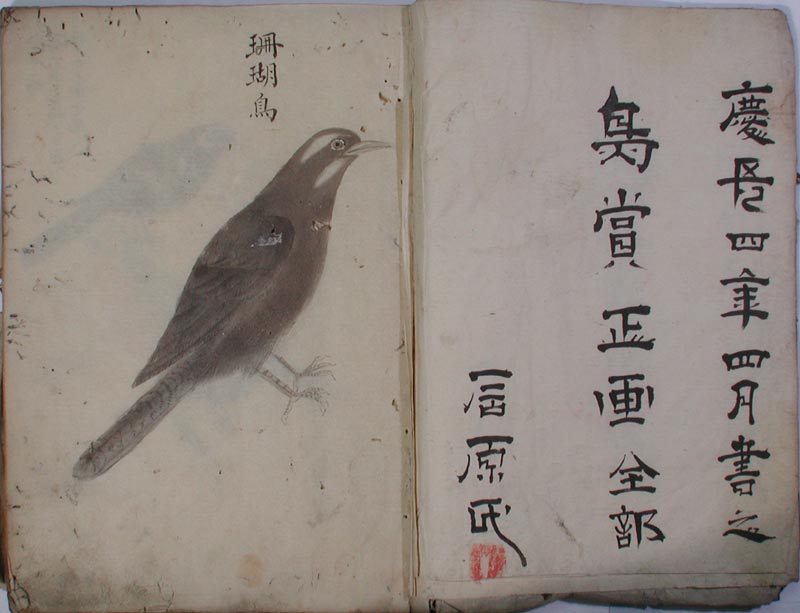 慶長四年四月書之
鳥賞正画全部
原氏
珊瑚鳥